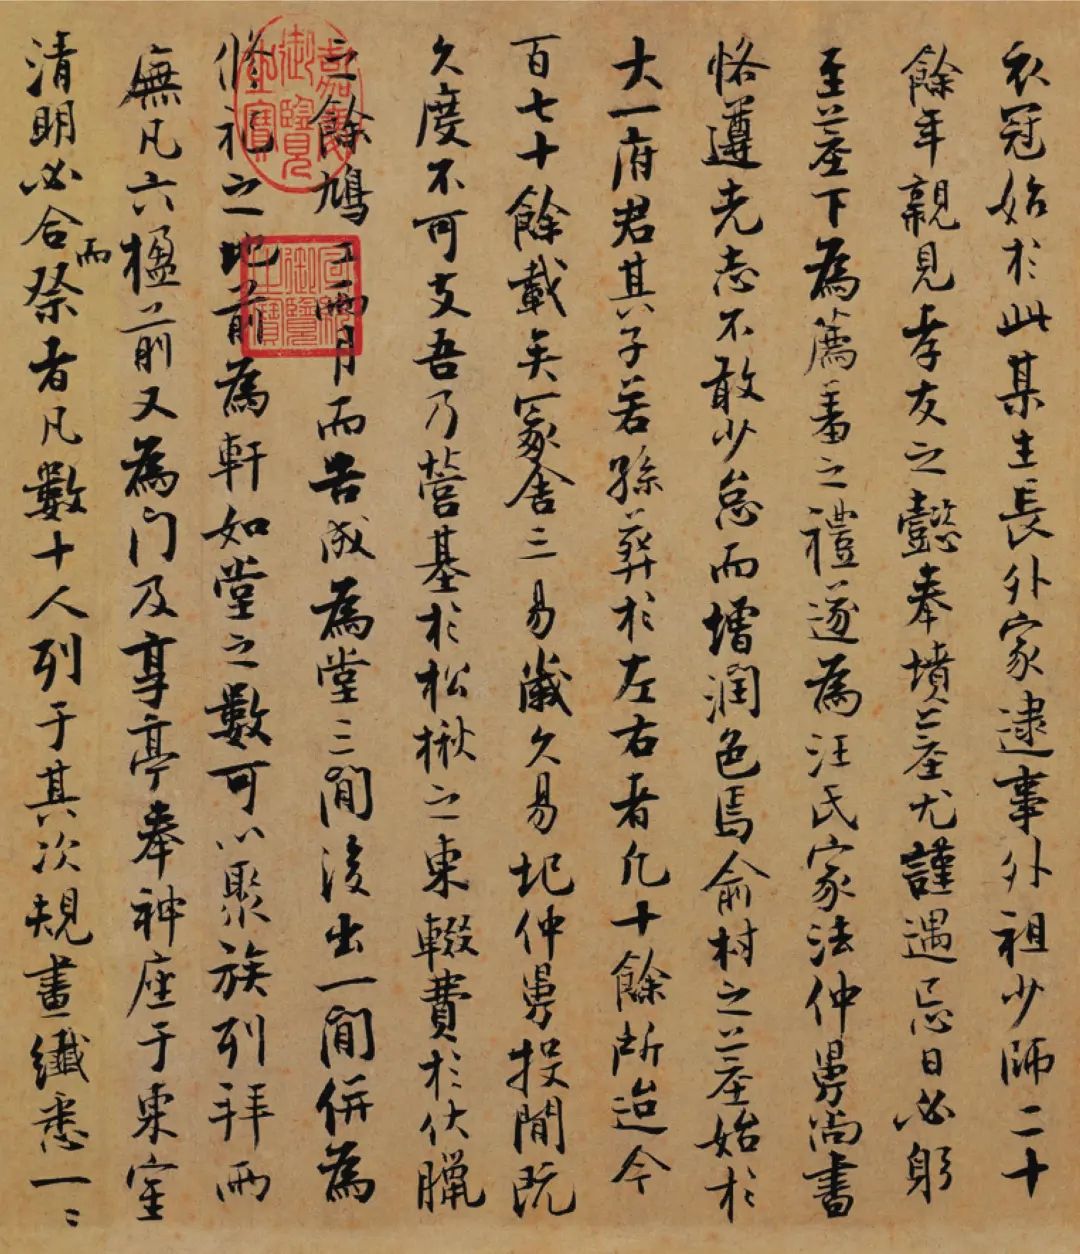 衣冠始於此某生長外家逮事外祖少師二十
餘年親見孝友之懿奉墳墓尤謹遇忌日必躬
至墓下為薦羞之禮遂為汪氏家法仲舅尚書
恪遵先志不敢少怠而增潤色焉俞村之墓始於
大一府君其子若孫葬於左右者凡十餘所迨今
百七十餘載矣冢舍三易歲久易圮仲舅投閒既
久度不可支吾乃營基於松楸之東輟費於伏臘
之餘鳩工兩月而告成為堂三間後出一間併為
修祀之地前為軒如堂之數可以聚族列拜兩
廡凡六楹前又為門及享亭奉神座于東室
清明必合而祭者凡數十人列于其次規畫纖悉一一
嘉慶御覽之寶
宣統御覽之寶